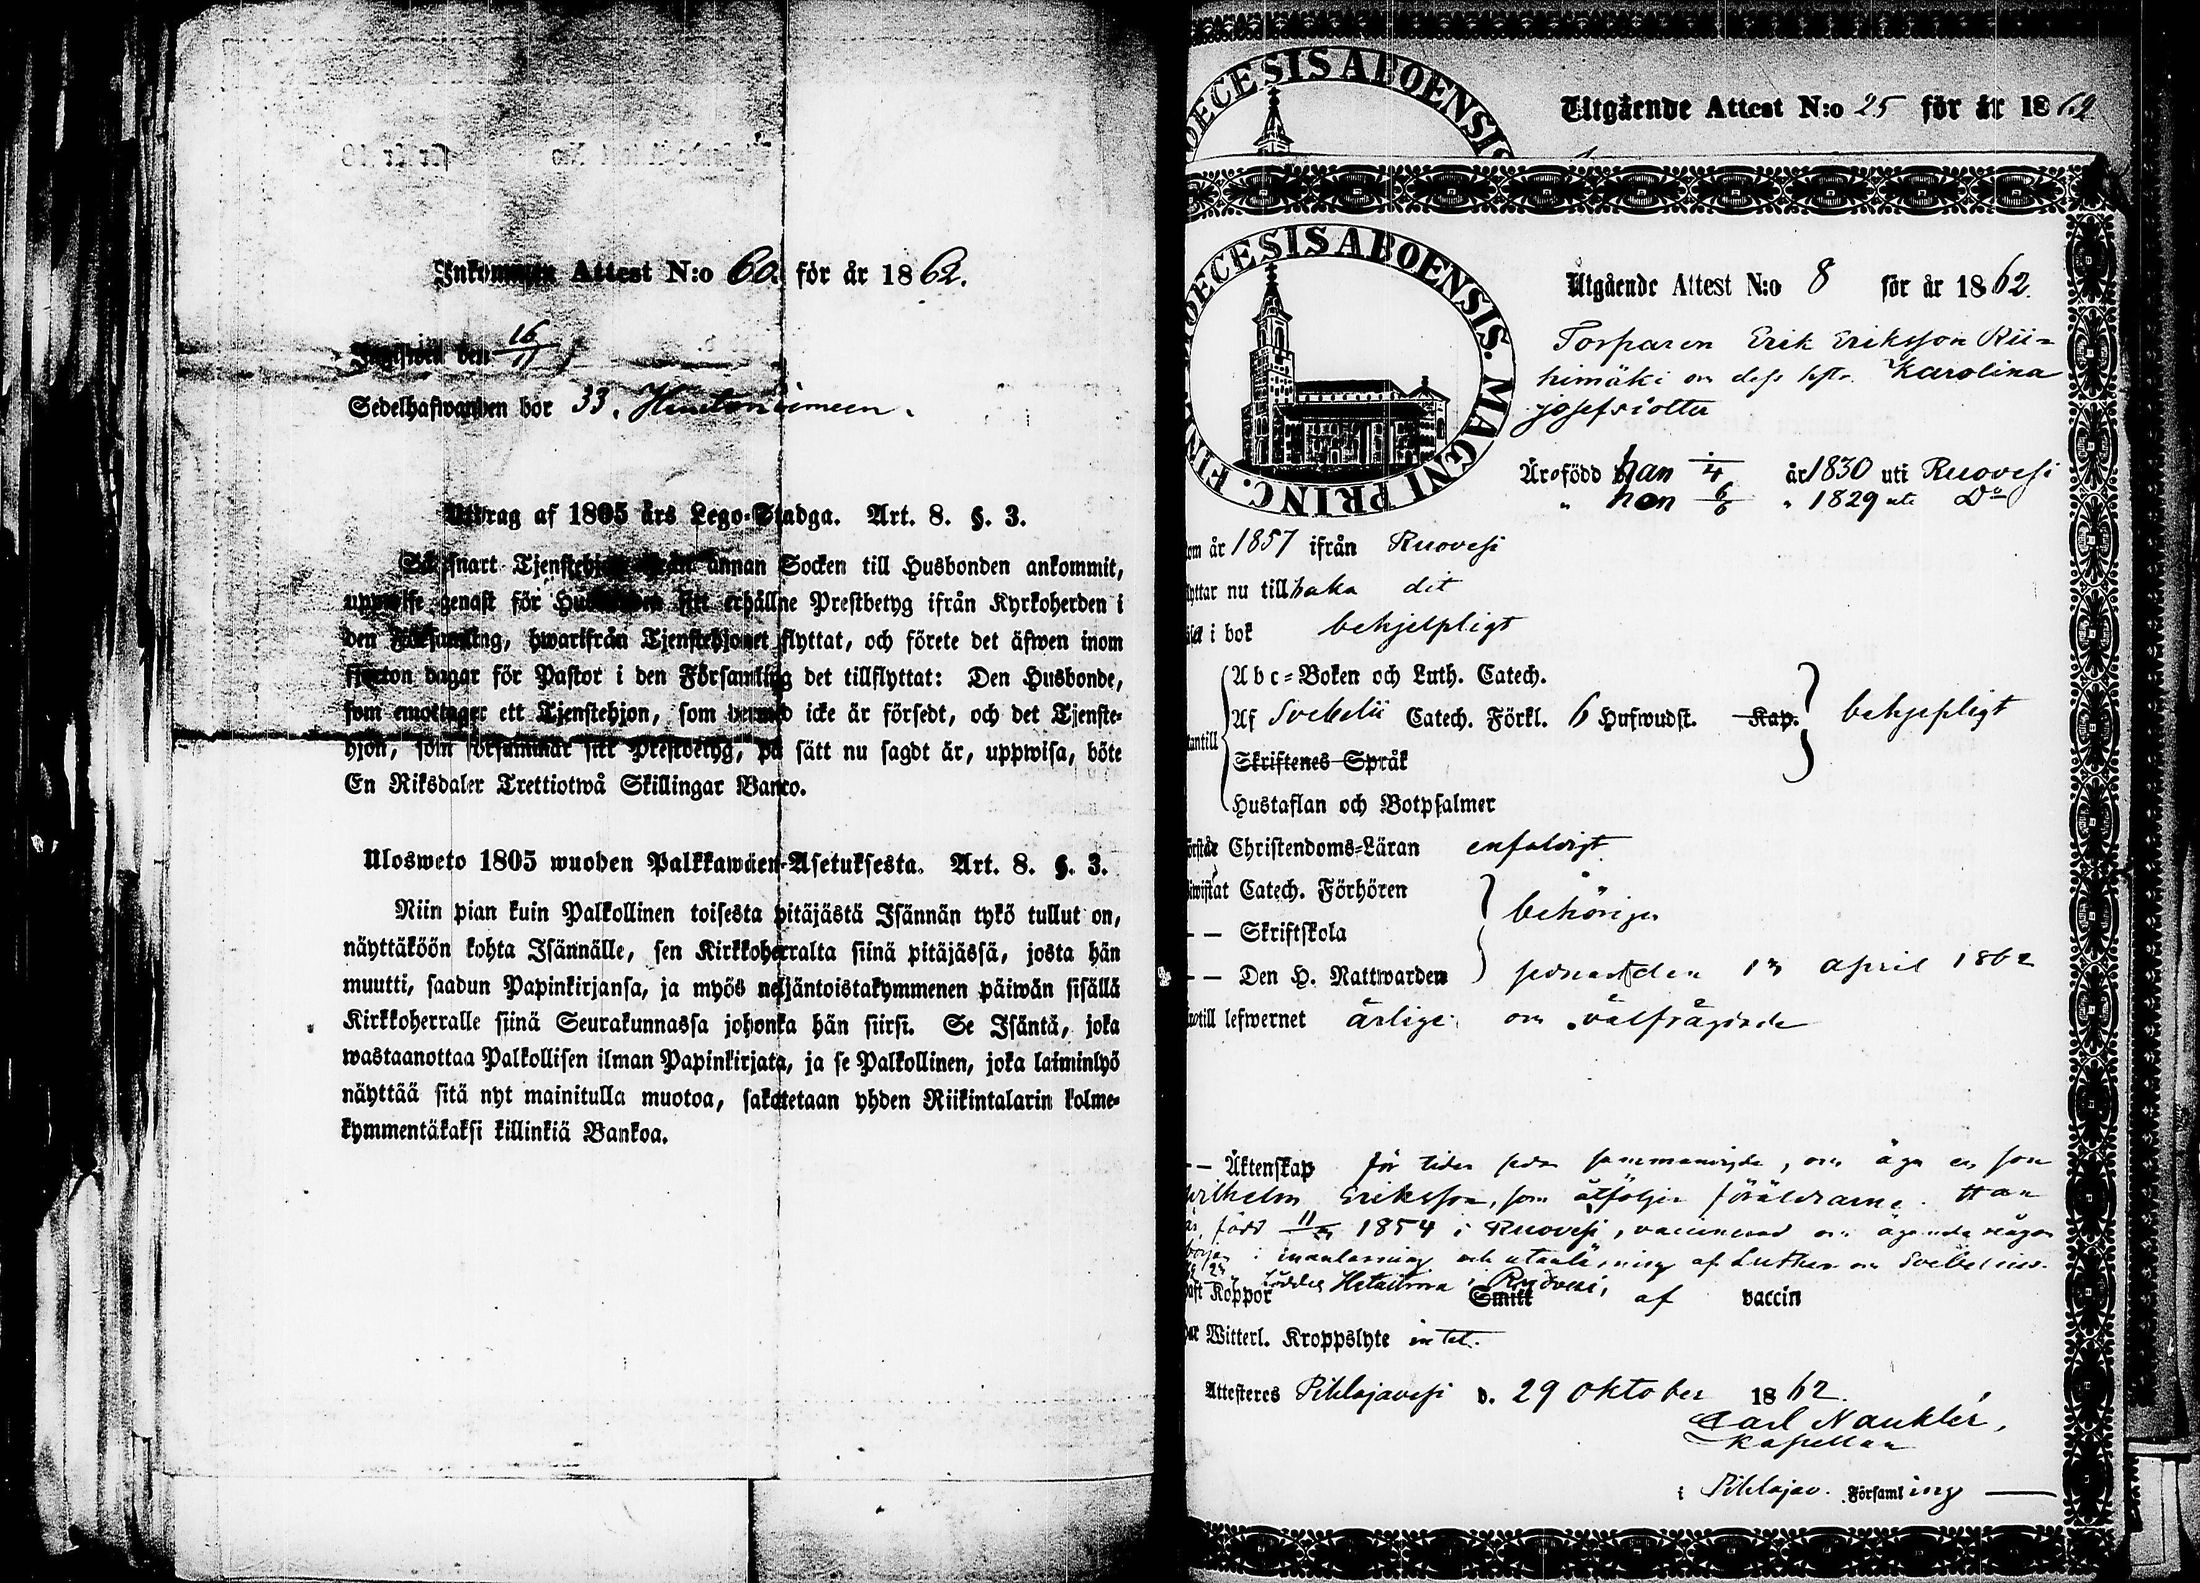 Inkommen Attest N:o 60. för år 1862.
Inskrifven den 16/11
Sedelhafwanden bor 33.
Utdrag af 1805 års Lego-Stadga. Art. 8. §. 3.
Så snart Tjenstehjon från annan Socken till Husbonden ankommit,
uppwise genast för Husbonden sitt erhållne Prestbetyg ifrån Kyrkoherden i
den Församling, hwarifrån Tjenstehjonet flyttat, och förete det äfwen inom
fjorton dagar för Pastor i den Församling det tillflyttat: Den Husbonde,
som emottager ett Tjenstehjon, som dermed icke är försedt, och det Tjenste-
hjon, som försummar sitt Prestbetyg, på sätt nu sagdt är, uppwisa, böte
En Riksdaler Trettiotwå Skillingar Banco.
Ulosweto 1805 wuoden Palkkawäen-Asetuksesta. Art. 8. §. 3.
Niin pian kuin Palkollinen toisesta pitäjästä Isännän tykö tullut on,
näyttäköön kohta Isännälle, sen Kirkkoherralta siinä pitäjässä, josta hän
muutti, saadun Papinkirjansa, ja myös neljäntoistakymmenen päiwän sisällä
Kirkkoherralle siinä Seurakunnassa johonka hän siirsi. Se Isäntä, joka
wastaanottaa Palkollisen ilman Papinkirjata, ja se Palkollinen, joka laiminlyö
näyttää sitä nyt mainitulla muotoa, sakotetaan yhden Riikintalarin kolme-
kymmentäkaksi killinkiä Bankoa.
DIOECESIS ABOENSIS
Utgående Attest N:o 25 för år 1862
DIOECESIS ABOENSIS. MAGNI PRINC. FINL.
Utgående Attest N:o 8 för år 1862.
Torparen Erik Eriksson Rii=
himäki och dess hustr. Karolina
Josefsdotter
Äro född han 1/4 år 1830 uti Ruovesi
" hon 6/6 " 1829 uti Do
om år 1857 ifrån Ruovesi
yttar nu tillbaka dit
i bok behjelpligt
Abc-Boken och Luth. Catech.
Af Svebelii Catech. Förkl. 6 Hufwudst. Kap. behjelpligt
antill
Skriftenes Språk
Hustaflan och Botpsalmer
Förstår Christendoms-Läran enfaldigt
Biwistat Catech. Förhören
behörigen
— — Skriftskola
— — Den H. Nattwarden senast den 13 april 1862
till lefwernet ärlige och välfräjdade
— — Äktenskap för tiden sedan sammanvigde, och äga en son
Wilhelm Eriksson, som åtföljer föräldrarne. Han
är född 11/ 1854 i Ruovesi, vaccinerad och ägande någon
början i innanläsning och utanläsning af Luther och Svebelius.
Ruovesi,
haft Koppor Smitt af vaccin
har Witterl. Kroppslyte intet.
Attesteres Pihlajavesi d. 29 oktober 1862.
Carl Nauklér,
Kapellan
i Pihlajav. Församling